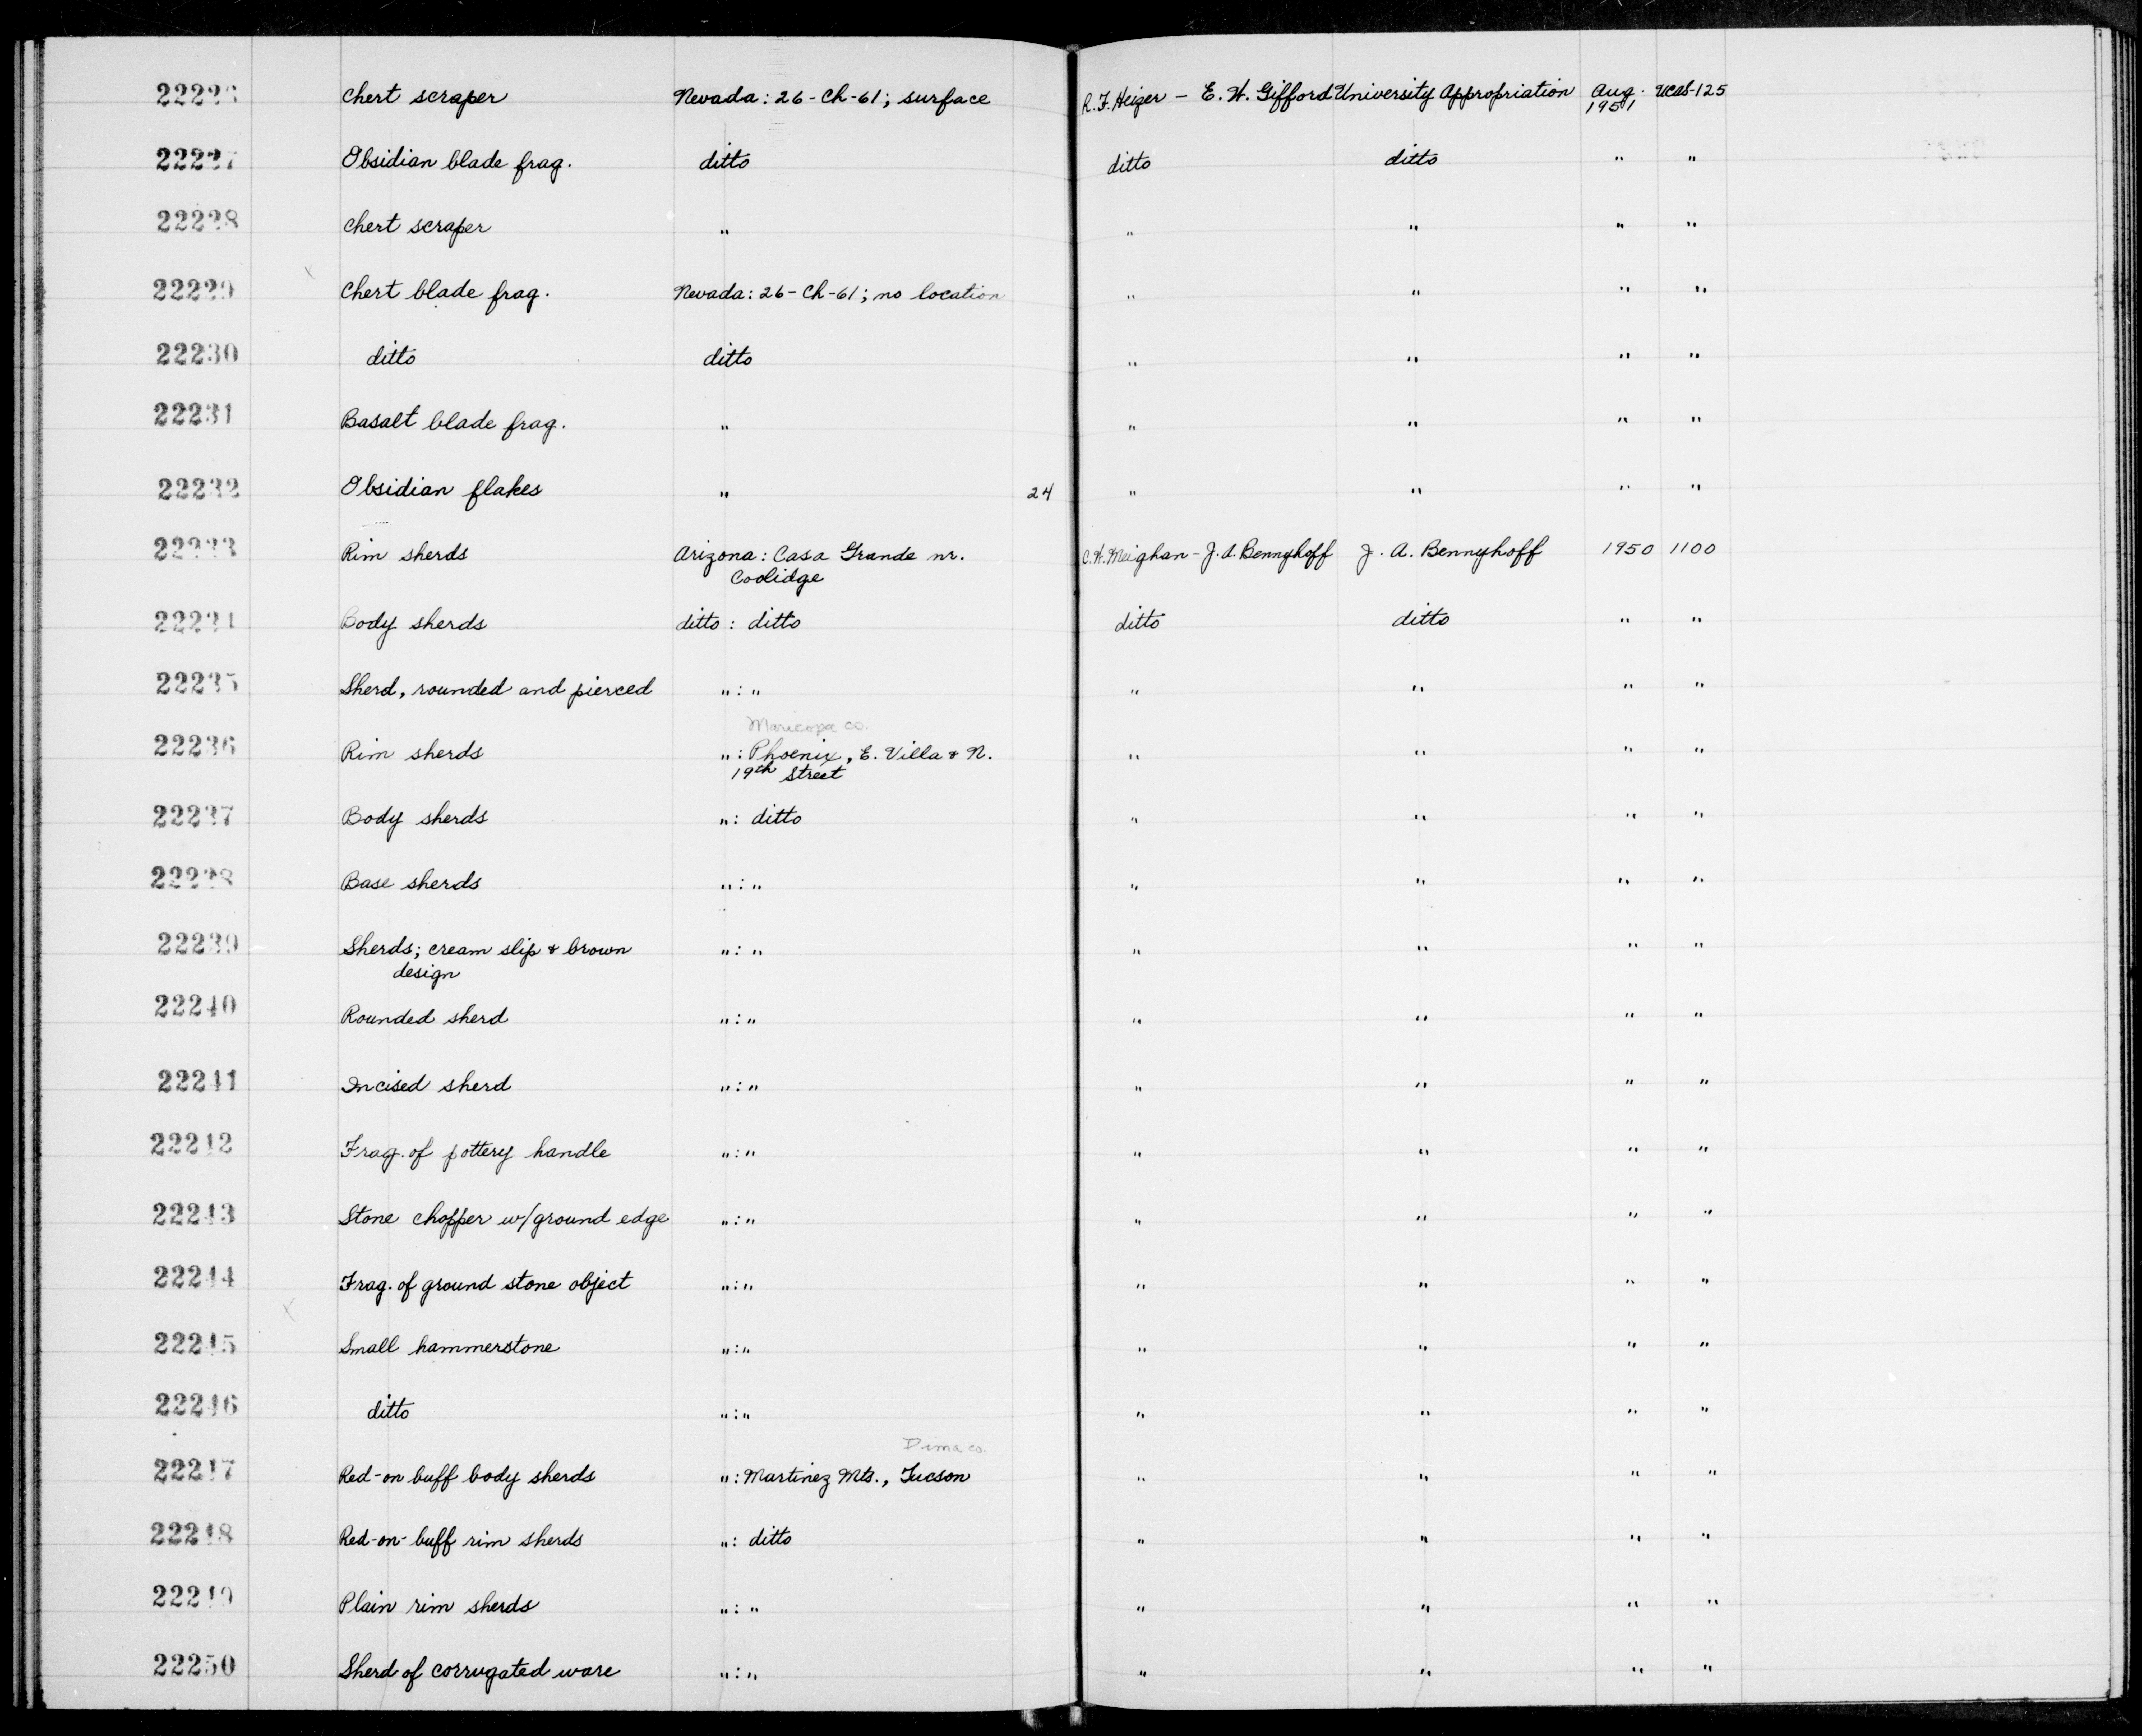 22226 Chert scraper Nevada: 26-Ch-61; surface R. F. Heizer - E. W. Gifford University Appropriation Aug. 1951 UCAS-125
22227 Obsidian blade frag. ditto ditto ditto " "
22228 Chert scraper " " " " "
22229 Chert blade frag. Nevada: 26-Ch-61; no location " " " "
22230 ditto ditto " " " "
22231 Basalt blade frag. " " " " "
22232 Obsidian flakes " 24 " " " "
22233 Rim sherds Arizona: Casa Grande nr. C. W. Meighan - J. A. Bennyhoff J. A. Bennyhoff 1950 1100
Coolidge
22234 Body sherds ditto: ditto ditto ditto " "
22235 Sherd, rounded and pierced ":" " " " "
Maricopa co.
22236 Rim sherds ": Phoenix, E. Villa & N. " " " "
19th Street
22237 Body sherds ": ditto " " " "
22238 Base sherds ":" " " " "
22239 Sherds; cream slip & brown ":" " " " "
design
22240 Rounded sherd ":" " " " "
22241 Incised sherd ":" " " " "
22242 Frag. of pottery handle ":" " " " "
22243 Stone chopper w/ground edge ":" " " " "
22244 Frag. of ground stone object ":" " " " "
22245 Small hammerstone ":" " " " "
22246 ditto ":" " " " "
Pima co.
22247 Red-on buff body sherds ": Martinez Mts., Tucson " " " "
22248 Red-on-buff rim sherds ": ditto " " " "
22249 Plain rim sherds ":" " " " "
22250 Sherd of corrugated ware ":" " " " "